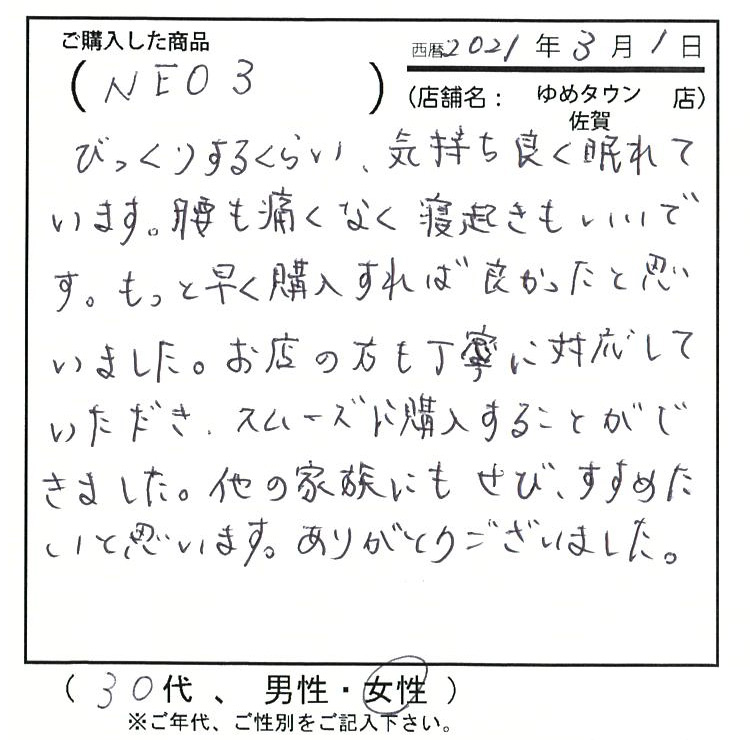 ご購入した商品
(NEO3)
西暦2021年3月1日
(店舗名： ゆめタウン佐賀 店)
びっくりするくらい、気持ち良く眠れて
います。腰も痛くなく寝起きもいいで
す。もっと早く購入すれば良かったと思
いました。お店の方も丁寧に対応して
いただき、スムーズに購入することがで
きました。他の家族にもぜひ、すすめた
いと思います。ありがとうございました。
(30代、男性・女性)
※ご年代、ご性別をご記入下さい。